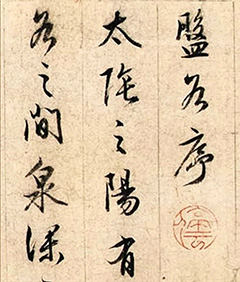 盤谷序
太之陽有
谷之間泉深